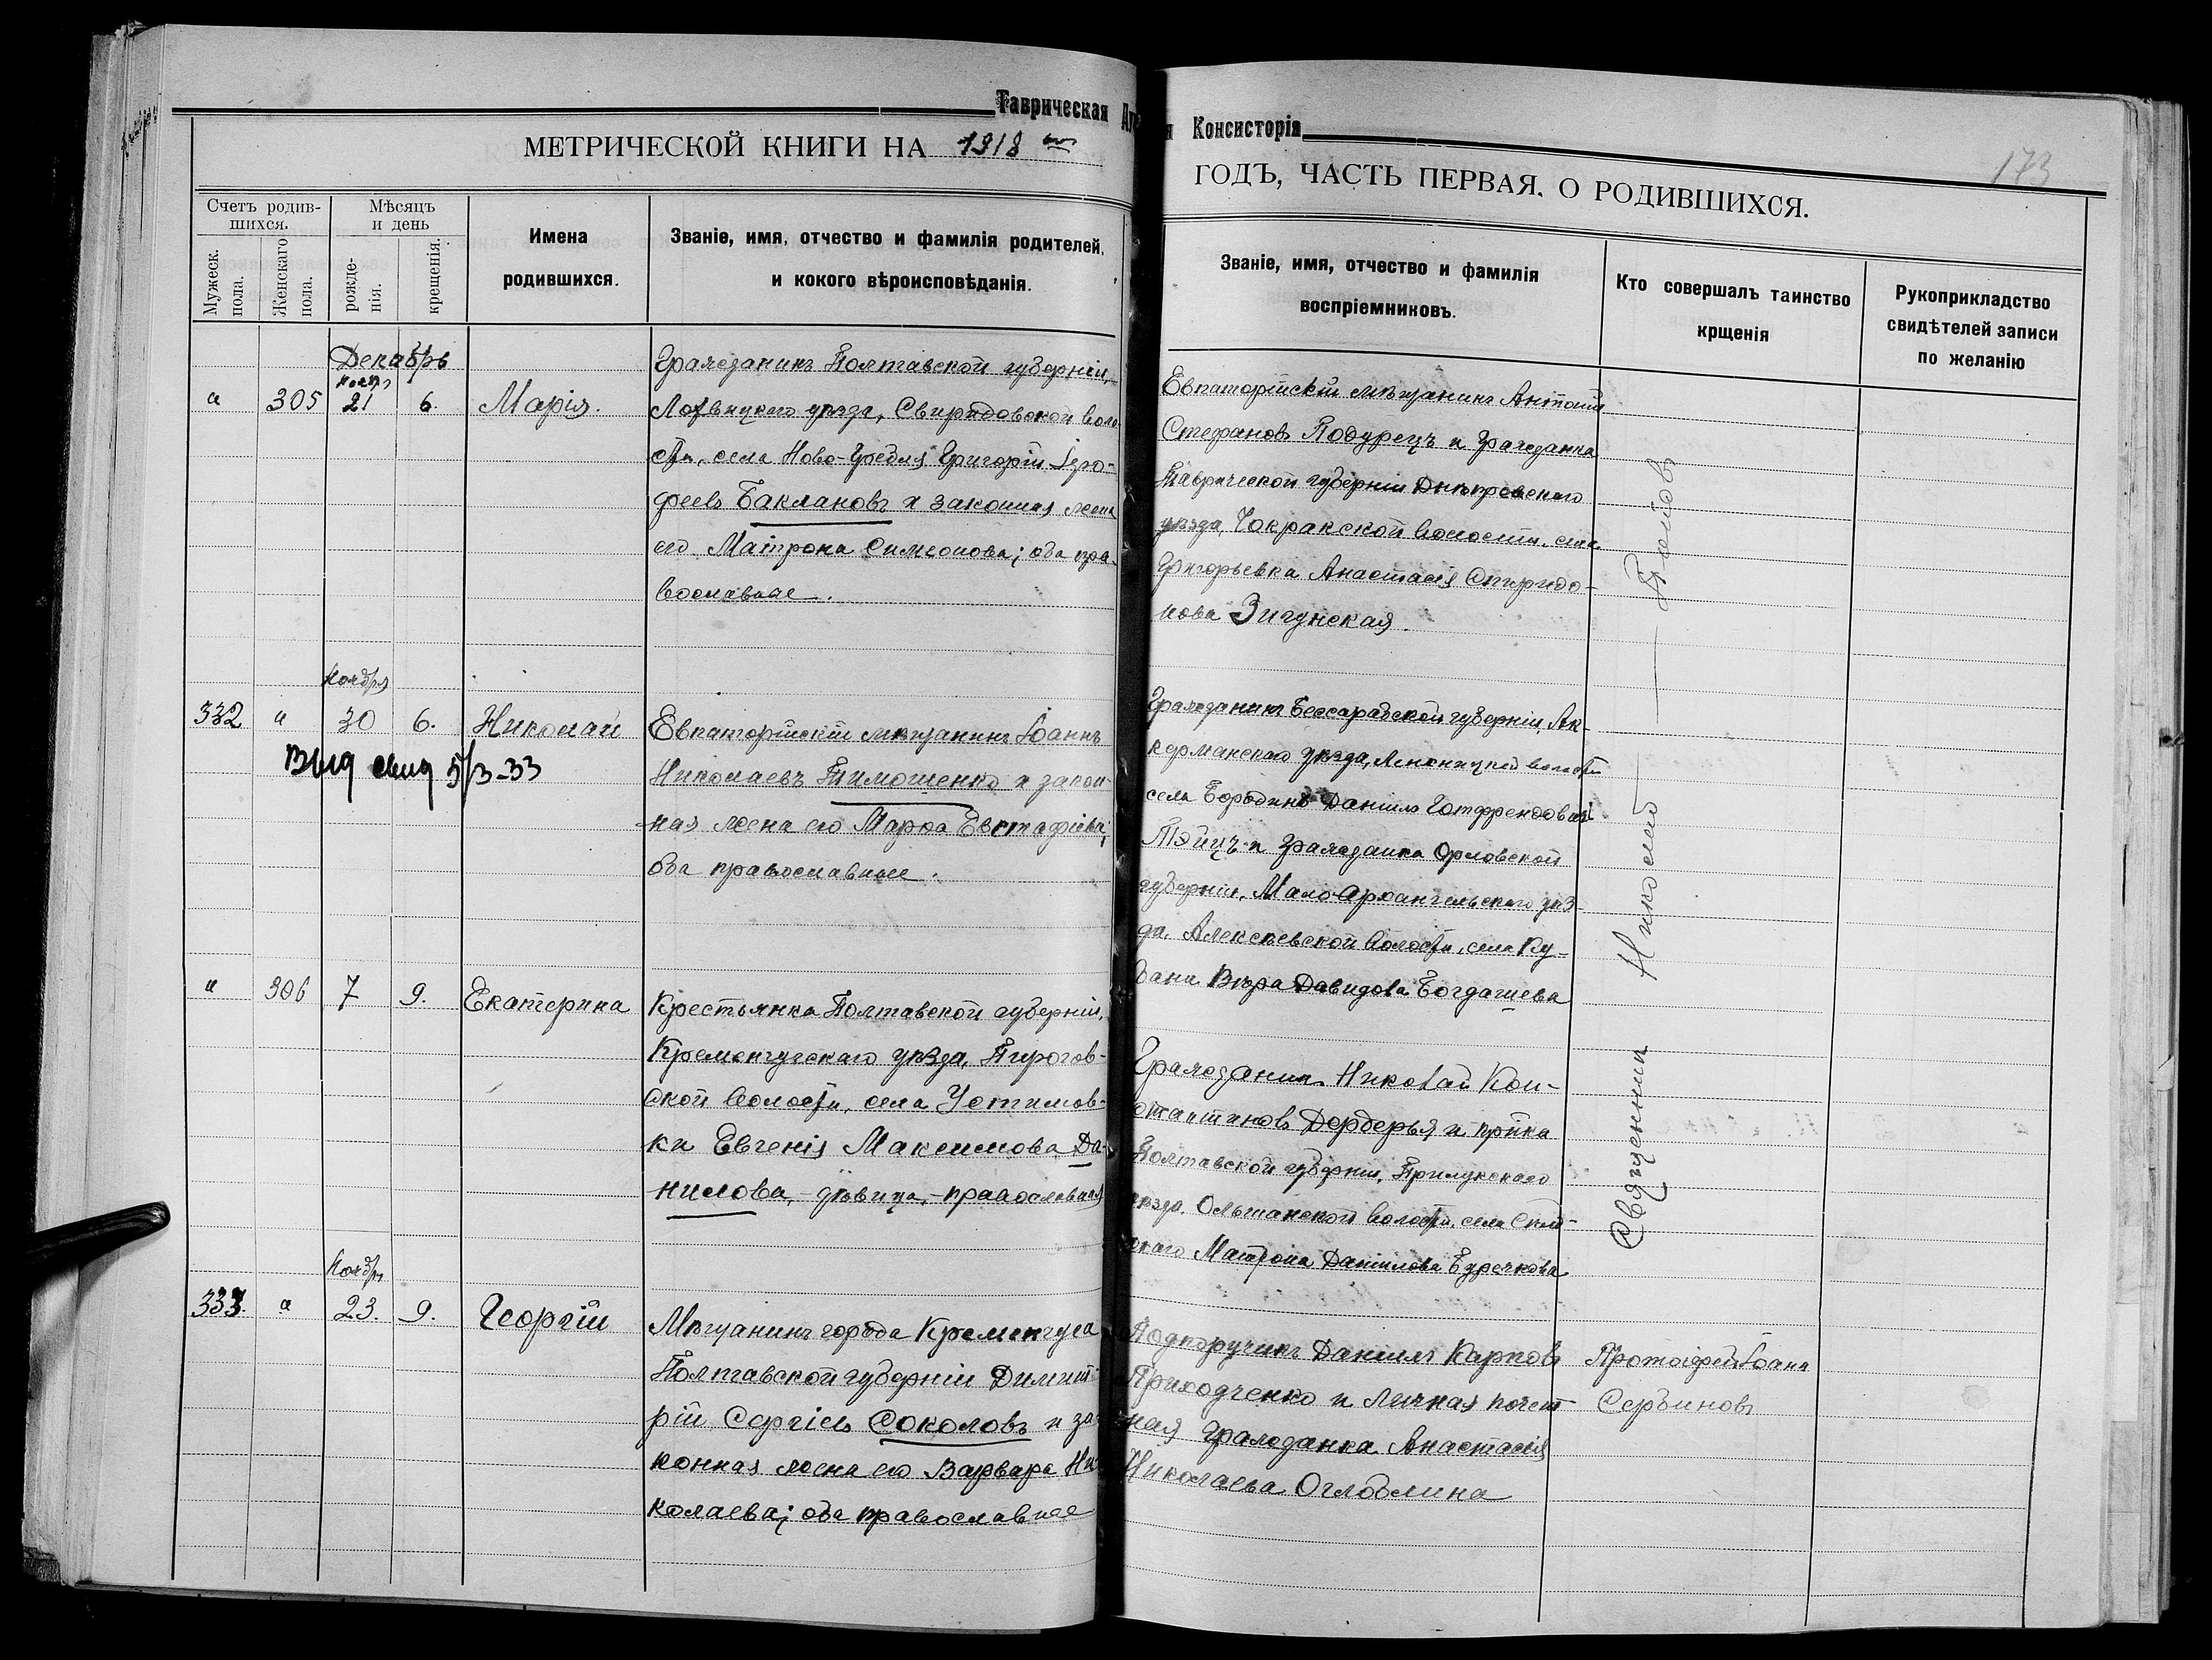 Таврическая
я Консисторія
МЕТРИЧЕСКОЙ КНИГИ НА 1918
ГОДЪ, ЧАСТЬ ПЕРВАЯ, О РОДИВШИХСЯ.
173
Счетъ родив-
шихся.
Мужеск.
пола.
Женскаго
пола.
Мѣсяцъ
и день
рожде-
нія.
крещенія.
Имена
родившихся.
Званіе, имя, отчество и фамилія родителей,
и кокого вѣроисповѣданія.
Званіе, имя, отчество и фамилія
воспріемниковъ.
Кто совершалъ таинство
крщенія
Рукоприкладство
свидѣтелей записи
по желанію
Декабрь
" 305 21 6. Марія.
Гражданинъ Полтавской губерніи,
Лохвицкаго уѣзда, Свиридовской воло-
сти, села Ново-Гребля Григорій Іеро-
феевъ Баклановъ и законная жена
его Матрона Симеонова; оба пра-
вославные.
Евпаторійскій мѣщанинъ Антоній
Стефановъ Подурецъ и гражданка
Таврической губерніи Днѣпровскаго
уѣзда, Чокракской волости, села
Григорьевка Анастасія Спиридо-
нова Зигунская.
Ноября
332 " 30 6. Николай
Выд свид 5/3-33
Евпаторійскій мѣщанинъ Іоаннъ
Николаевъ Тимошенко и закон-
ная жена его Марѳа Евстафіева;
оба православные.
Гражданинъ Бессарабской губерніи, Ак-
керманскаго уѣзда, волости
села Бородино Даніилъ Готфрендовъ
Тэйцъ и гражданка Орловской
губерніи, Мало-Архангельскаго уѣз-
да, Алексѣевской волости, села Ку-
бани Вѣра Давидова Богдашева
" 306 7 9. Екатерина
Крестьянка Полтавской губерніи,
Кременчугскаго уѣзда, Пирогов-
ской волости, села Устимов-
ки Евгенія Максимова Да-
нилова, - дѣвица, - православная
Гражданинъ Николай Кон-
стантиновъ Дерберья и
Полтавской губерніи, Прилукскаго
уѣзда, Ольшанской волости, села
Матрона Даніилова Бурячкова
Священникъ Николай Поповъ
Ноября
333. " 23. 9. Георгій
Мѣщанинъ города Кременчуга
Полтавской губерніи Димит-
рій Сергіевъ Соколовъ и за-
конная жена его Варвара Ни-
колаева; оба православные
Подпоручикъ Даніилъ Карповъ
Приходченко и личная почет-
ная гражданка Анастасія
Николаева Оглоблина
Протоіерей Іоаннъ
Сербиновъ